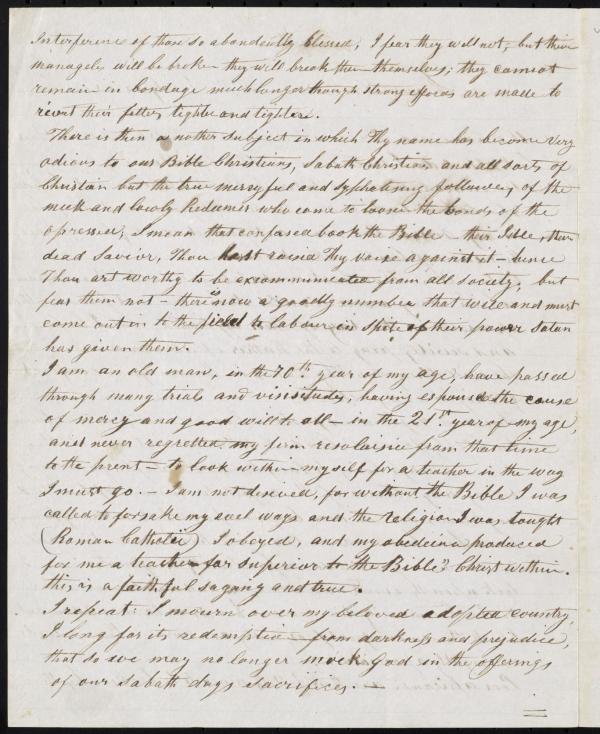 Interference of those so abondently blessed, I fear they will not, but their
manageles will be broken they will break them themselves; they cannot
remain in bondage much longer though strong efords are made to
revit their fetters tighter and tighter.
There is then a nother subject in which Thy name has become very
odious to our Bible Christians, Sabath Christians and all sorts of
Christain but the true mersyful and syphatising followers of the
meek and lowly Redeemer who come to loose the bonds of the
opressed, I mean that confused book the Bible — their Idle, their
dead Savior, Thou hast raised Thy voice against it — hence
Thou art worthy to be excommunicated from all society, but
fear them not — there is now a goodly number that will and must
come out in to the field to labour in spite of their power Satan
has given them.
I am an old man, in the 70th year of my age, have passed
through many trials and visisitudes, having espoused the cause
of mercy and good will to all — in the 21st. year of my age,
and never regretted my firm resoluisice from that time
to the present — to look within myself for a teacher in the way
I must go. — I am not deseived, for without the Bible I was
called to forsake my evel ways and the religion I was tought
(Roman Catholic) I obeyed, and my obedeince produced
for me a teacher far superior to the Bible? Christ within.
this is a faithful saying and true.
I repeat: I mourn over my beloved adopted country,
I long for its redemption from darkness and prejudice,
that so we may no longer mock God in the offerings
of our Sabath days sacrifices. —